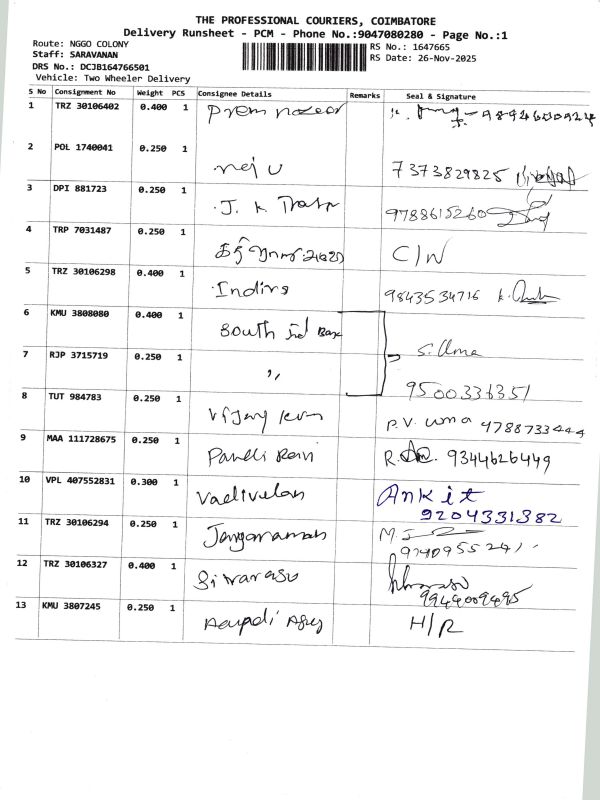 THE PROFESSIONAL COURIERS, COIMBATORE
Delivery Runsheet - PCM - Phone No.:9047080280 - Page No.:1
Route: NGGO COLONY
Staff: SARAVANAN
DRS No.: DCJB164766501
Vehicle: Two Wheeler Delivery
RS No.: 1647665
RS Date: 26-Nov-2025
S No Consignment No Weight PCS Consignee Details Remarks Seal & Signature
1 TRZ 30106402 0.400 1 9894600924
2 POL 1740041 0.250 1 7373829825
3 DPI 881723 0.250 1 J. K. 9788615260
4 TRP 7031487 0.250 1 C/N
5 TRZ 30106298 0.400 1 Indira 9843534716
6 KMU 3808080 0.400 1 South Ind Bank
7 RJP 3715719 0.250 1 ,, S. Uma
9500336351
8 TUT 984783 0.250 1 Vijay P.V. Uma 9788733444
9 MAA 111728675 0.250 1 Pandi 9344626449
10 VPL 407552831 0.300 1 Vadivelan Ankit
9204331382
11 TRZ 30106294 0.250 1 M.J
12 TRZ 30106327 0.400 1 Sivarasu
9944009495
13 KMU 3807245 0.250 1 H/R